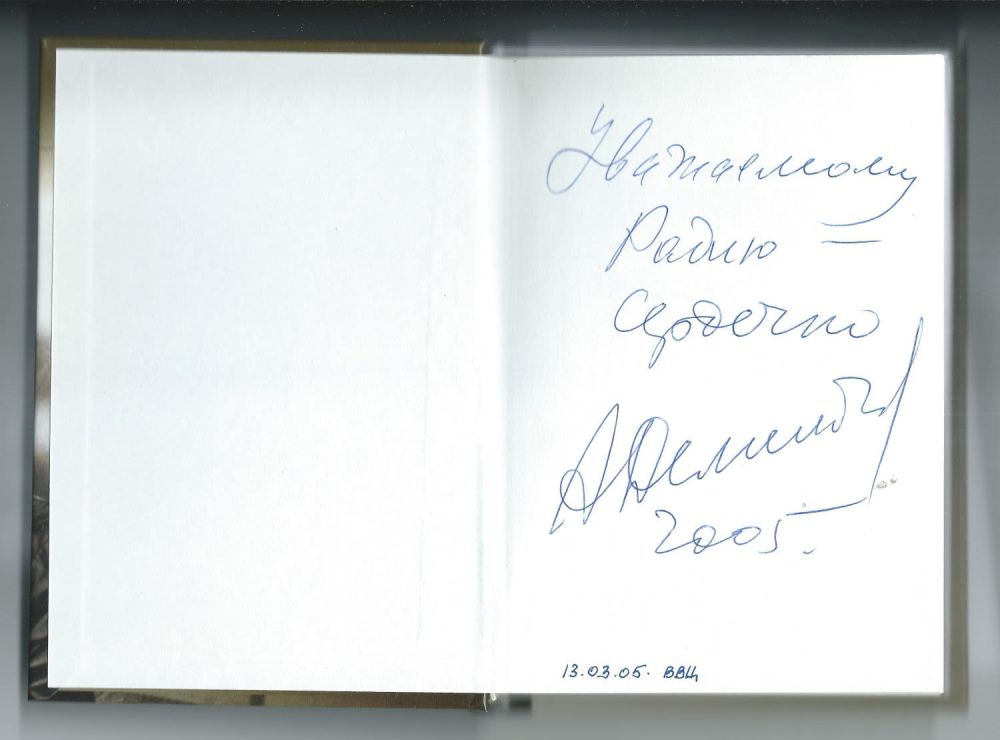 Уважаемому
Радию =
Сердечно
2005.
13.03.05. ВВЦ